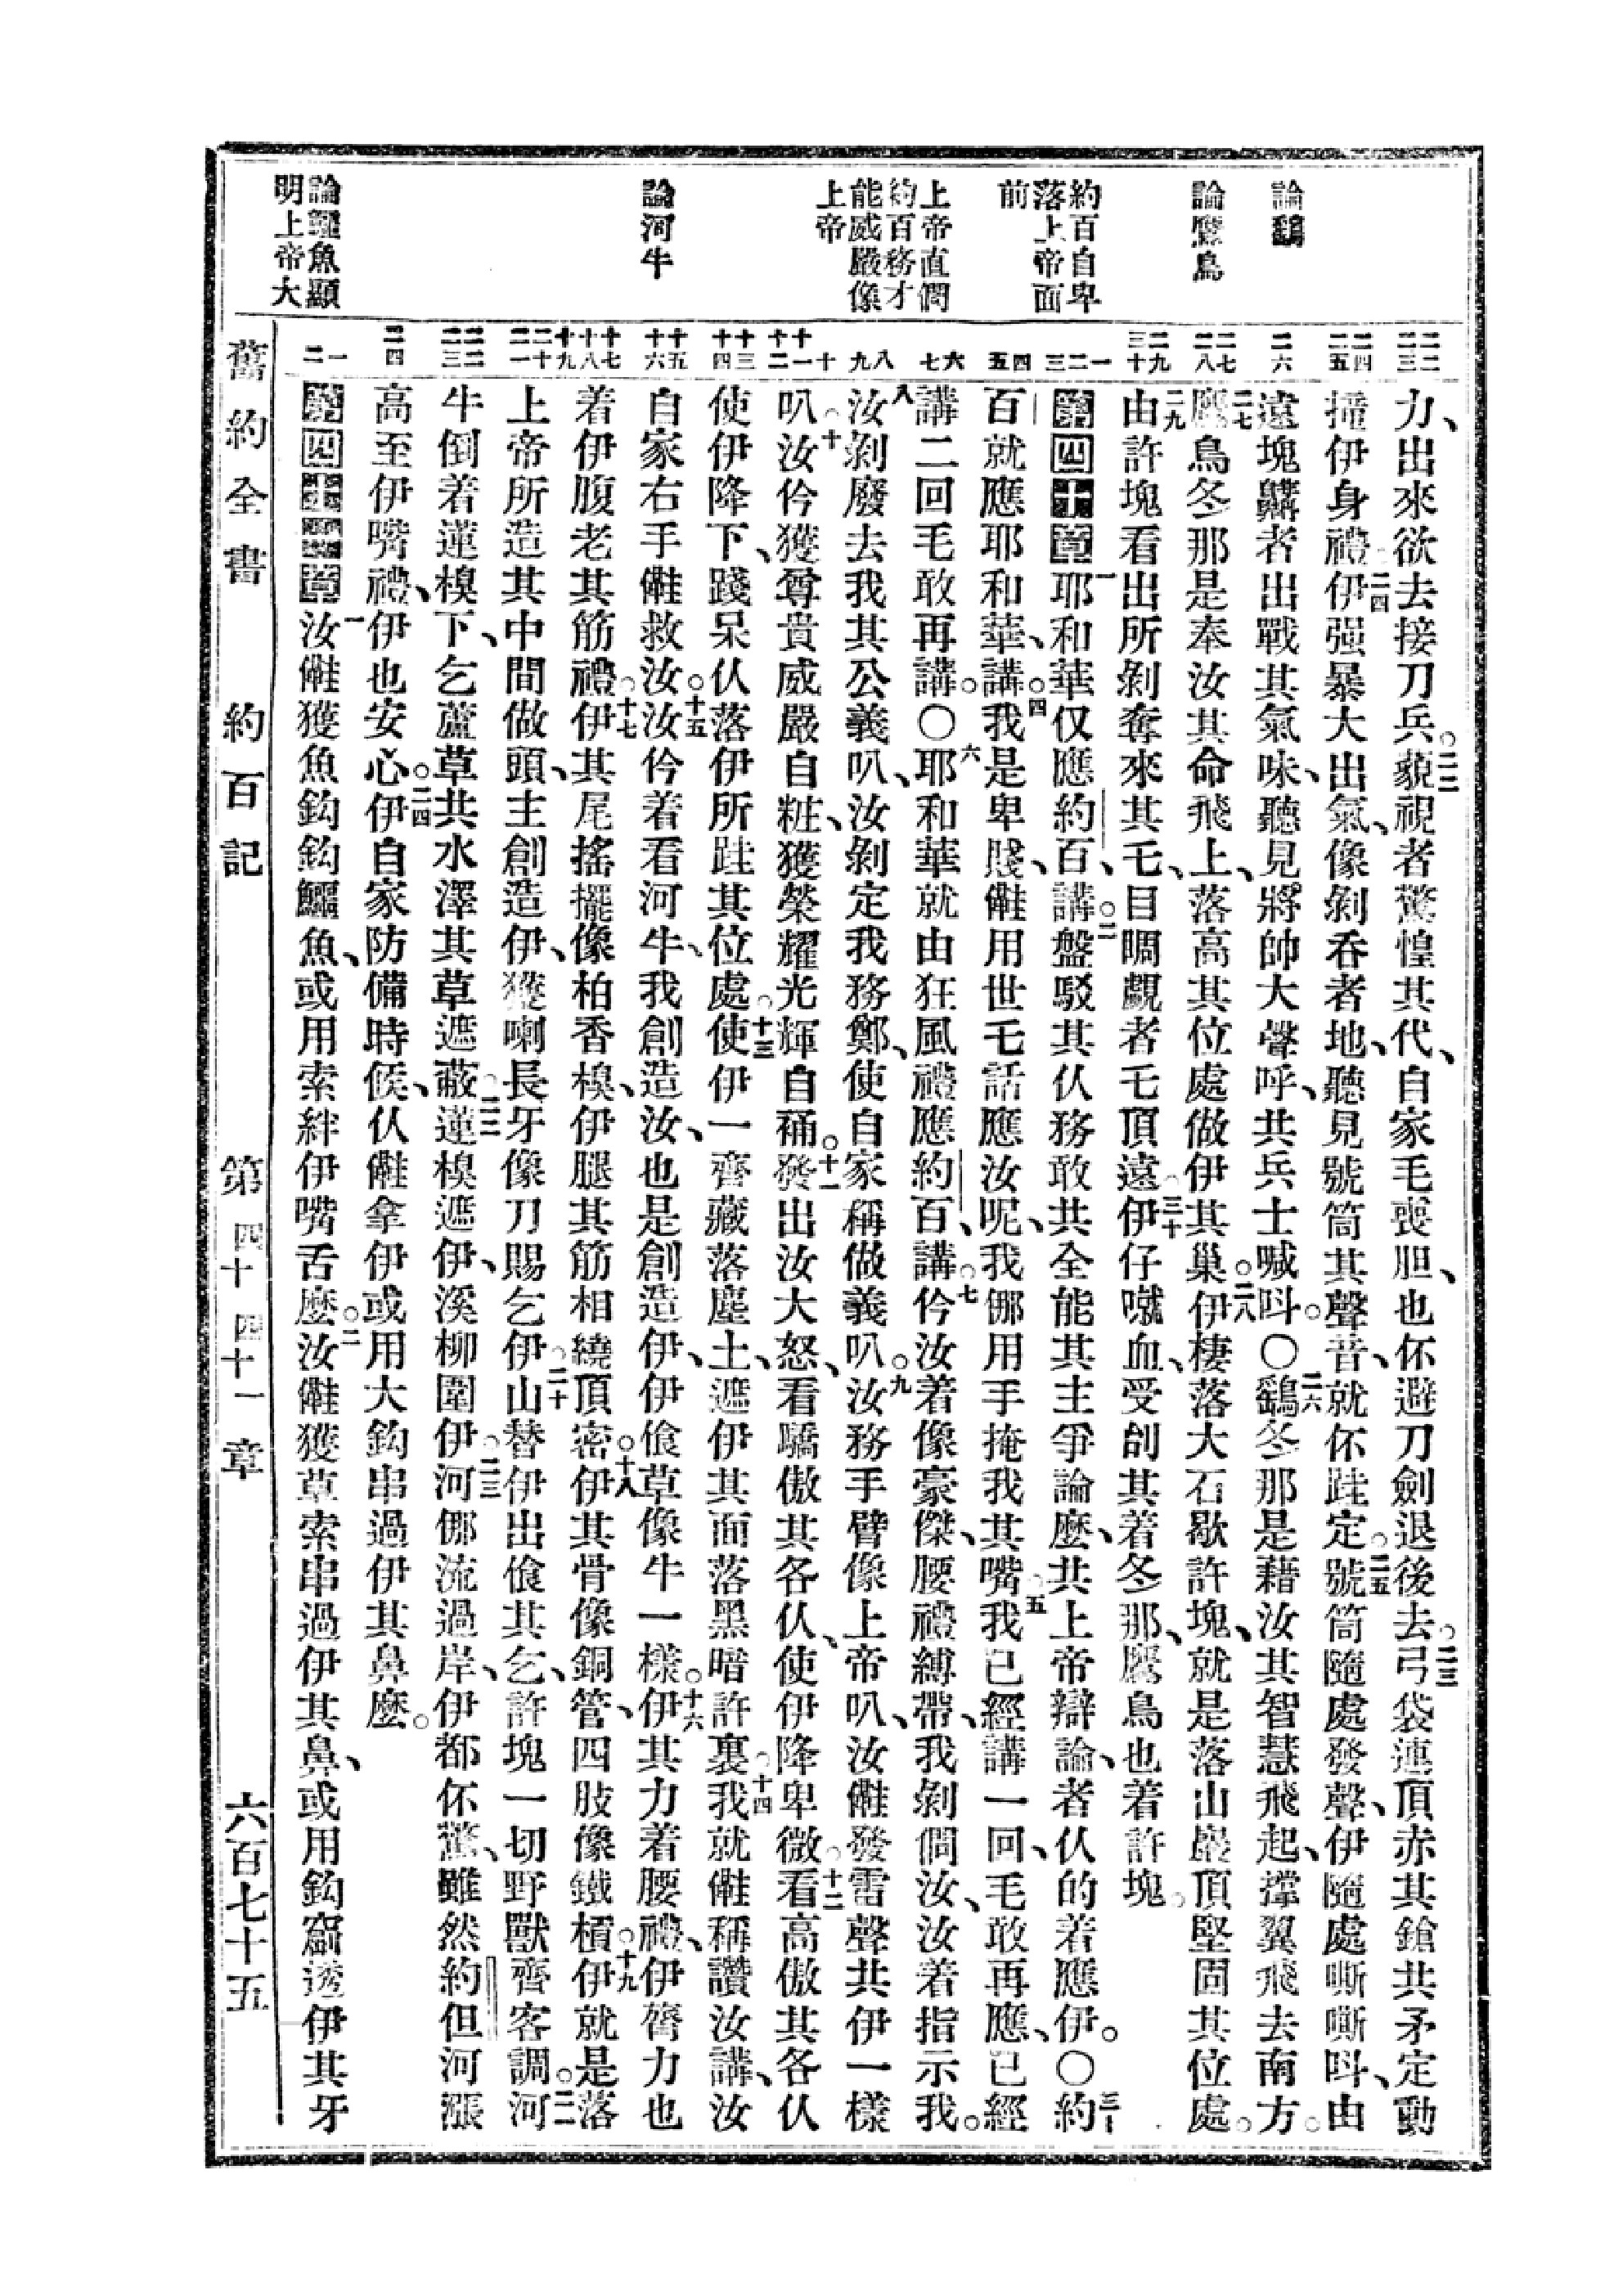 論鷂
論鷹鳥
約百自卑
落上帝面
前
上帝直問
約百務才
能威嚴像
上帝
論河牛
論鱷魚顯
明上帝大
力、出來欲去接刀兵。二二藐視者驚惶其代、自家毛喪胆、也伓避刀劍退後去。二三弓袋連頂赤其鎗共矛定動
伊身禮。二四伊强暴大出氣、像剝吞者地、聽見號筒其聲音、就伓跬定。二五號筒隨處發聲、伊隨處嘶嘶呌、由
遠塊鼸者出戰其氣味、聽見將帥大聲呼、共兵士喊呌。〇二六鷂冬那是藉汝其智慧飛起、撐翼飛去南方。
二七鷹鳥冬那是奉汝其命飛上、落高其位處做伊其巢。二八伊棲落大石歇許塊、就是落山巖頂堅固其位處。
二九由許塊看出所剝奪來其乇、目睭覷者乇頂遠。三十伊仔噈血、受刣其着冬那、鷹鳥也着許塊。
第四十章一耶和華仅應約百、講。二盤駁其仈務敢共全能其主爭論麽、共上帝辯論、者仈的着應伊。〇三約
百就應耶和華、講。四我是卑賤、㑚用世乇話應汝呢、我㑚用手掩我其嘴。五我已經講一回、毛敢再應、已經
講二回毛敢再講。〇六耶和華就由狂風禮應約百、講。七仱汝着像豪傑、腰禮縛帶、我剝問汝、汝着指示我。
八汝剝廢去我其公義叭、汝剝定我務鄭、使自家稱做義叭。九汝務手臂像上帝叭、汝㑚發雷聲共伊一樣
叭。十汝仱獲尊貴威嚴自粧、獲榮耀光輝自稱。十一發出汝大怒、看驕傲其各仈、使伊降卑微。十二看高傲其各仈
使伊降下、踐呆仈落伊所跬其位處。十三使伊一齊藏落塵土、遮伊其面落黑暗許裏。十四我就㑚稱讚汝講、汝
自家右手㑚救汝。十五汝仱着看河牛、我創造汝、也是創造伊、伊飡草像牛一樣。十六伊其力着腰禮、伊膂力也
着伊腹老其筋禮。十七伊其尾搖擺像柏香模、伊腿其筋相繞頂密。十八伊其骨像銅管、四肢像鐵槓。十九伊就是落
上帝所造其中間做頭、主創造伊、獲喇長牙像刀賜乞伊。二十山替伊出飡其乞、許塊一切野獸齊客調。二一河
牛倒着蓮模下、乞蘆草共水澤其草遮蔽。二二蓮模遮伊、溪柳圍伊。二三河㑚流過岸、伊都伓驚、雖然約但河漲
高至伊嘴禮、伊也安心。二四伊自家防備時候、仈㑚拿伊或用大鈎串過伊其鼻麽。
第四十一章一汝㑚獲魚鈎鈎鱷魚、或用索絆伊嘴舌麽。二汝㑚獲草索串過伊其鼻、或用鈎竊透伊其牙
舊約全書　約百記　第四十　四十一章　六百七十五